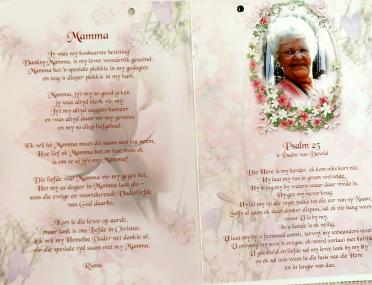 Mamma
Jy was my kosbaarste besitting
Danksy Mamma, is my lewe wonderlik geseënd,
Mamma het 'n spesiale plekkie in my gedagtes
en nog 'n dieper plekkie in my hart.
Mamma, jy's my so goed
jy was altyd sterk vir my
Jy's my altyd saggies hanteer
en was altyd daar vir my gewees
en my so diep liefgehad.
Ek wil hê Mamma moet dit saam met my neem,
Hoe lief ek Mamma het en hoe trots ek
is om te sê jy's my Mamma!
Die liefde wat Mamma vir my gegee het,
Het my as dogter in Mamma laat glo -
soos die ewige en voortdurende Vaderliefde
van God daarbo.
Kort is die lewe op aarde,
maar lank is ons Liefde in Christus.
Ek wil my Hemelse Vader net dankie sê,
vir die spesiale tyd saam met my Mamma.
Riana
Psalm 23
'n Psalm van Dawid
Die Here is my herder, ek kom niks kort nie.
Hy laat my rus in groen weivelde,
Hy bring my by waters waar daar vrede is,
Hy gee my nuwe krag.
Hy lei my op die regte paaie tot die eer van sy Naam,
Selfs al gaan ek deur donker dieptes, sal ek nie bang wees nie,
want U is by my,
In u hande is ek veilig.
U laat my by 'n feesmaal aansit, terwyl my teëstanders moet
U ontvang my soos 'n eregas, ek word oorlaai met
U goedheid en liefde sal my lewe lank by my bly
en ek sal tuis wees in die huis van die Here
tot in lengte van dae.